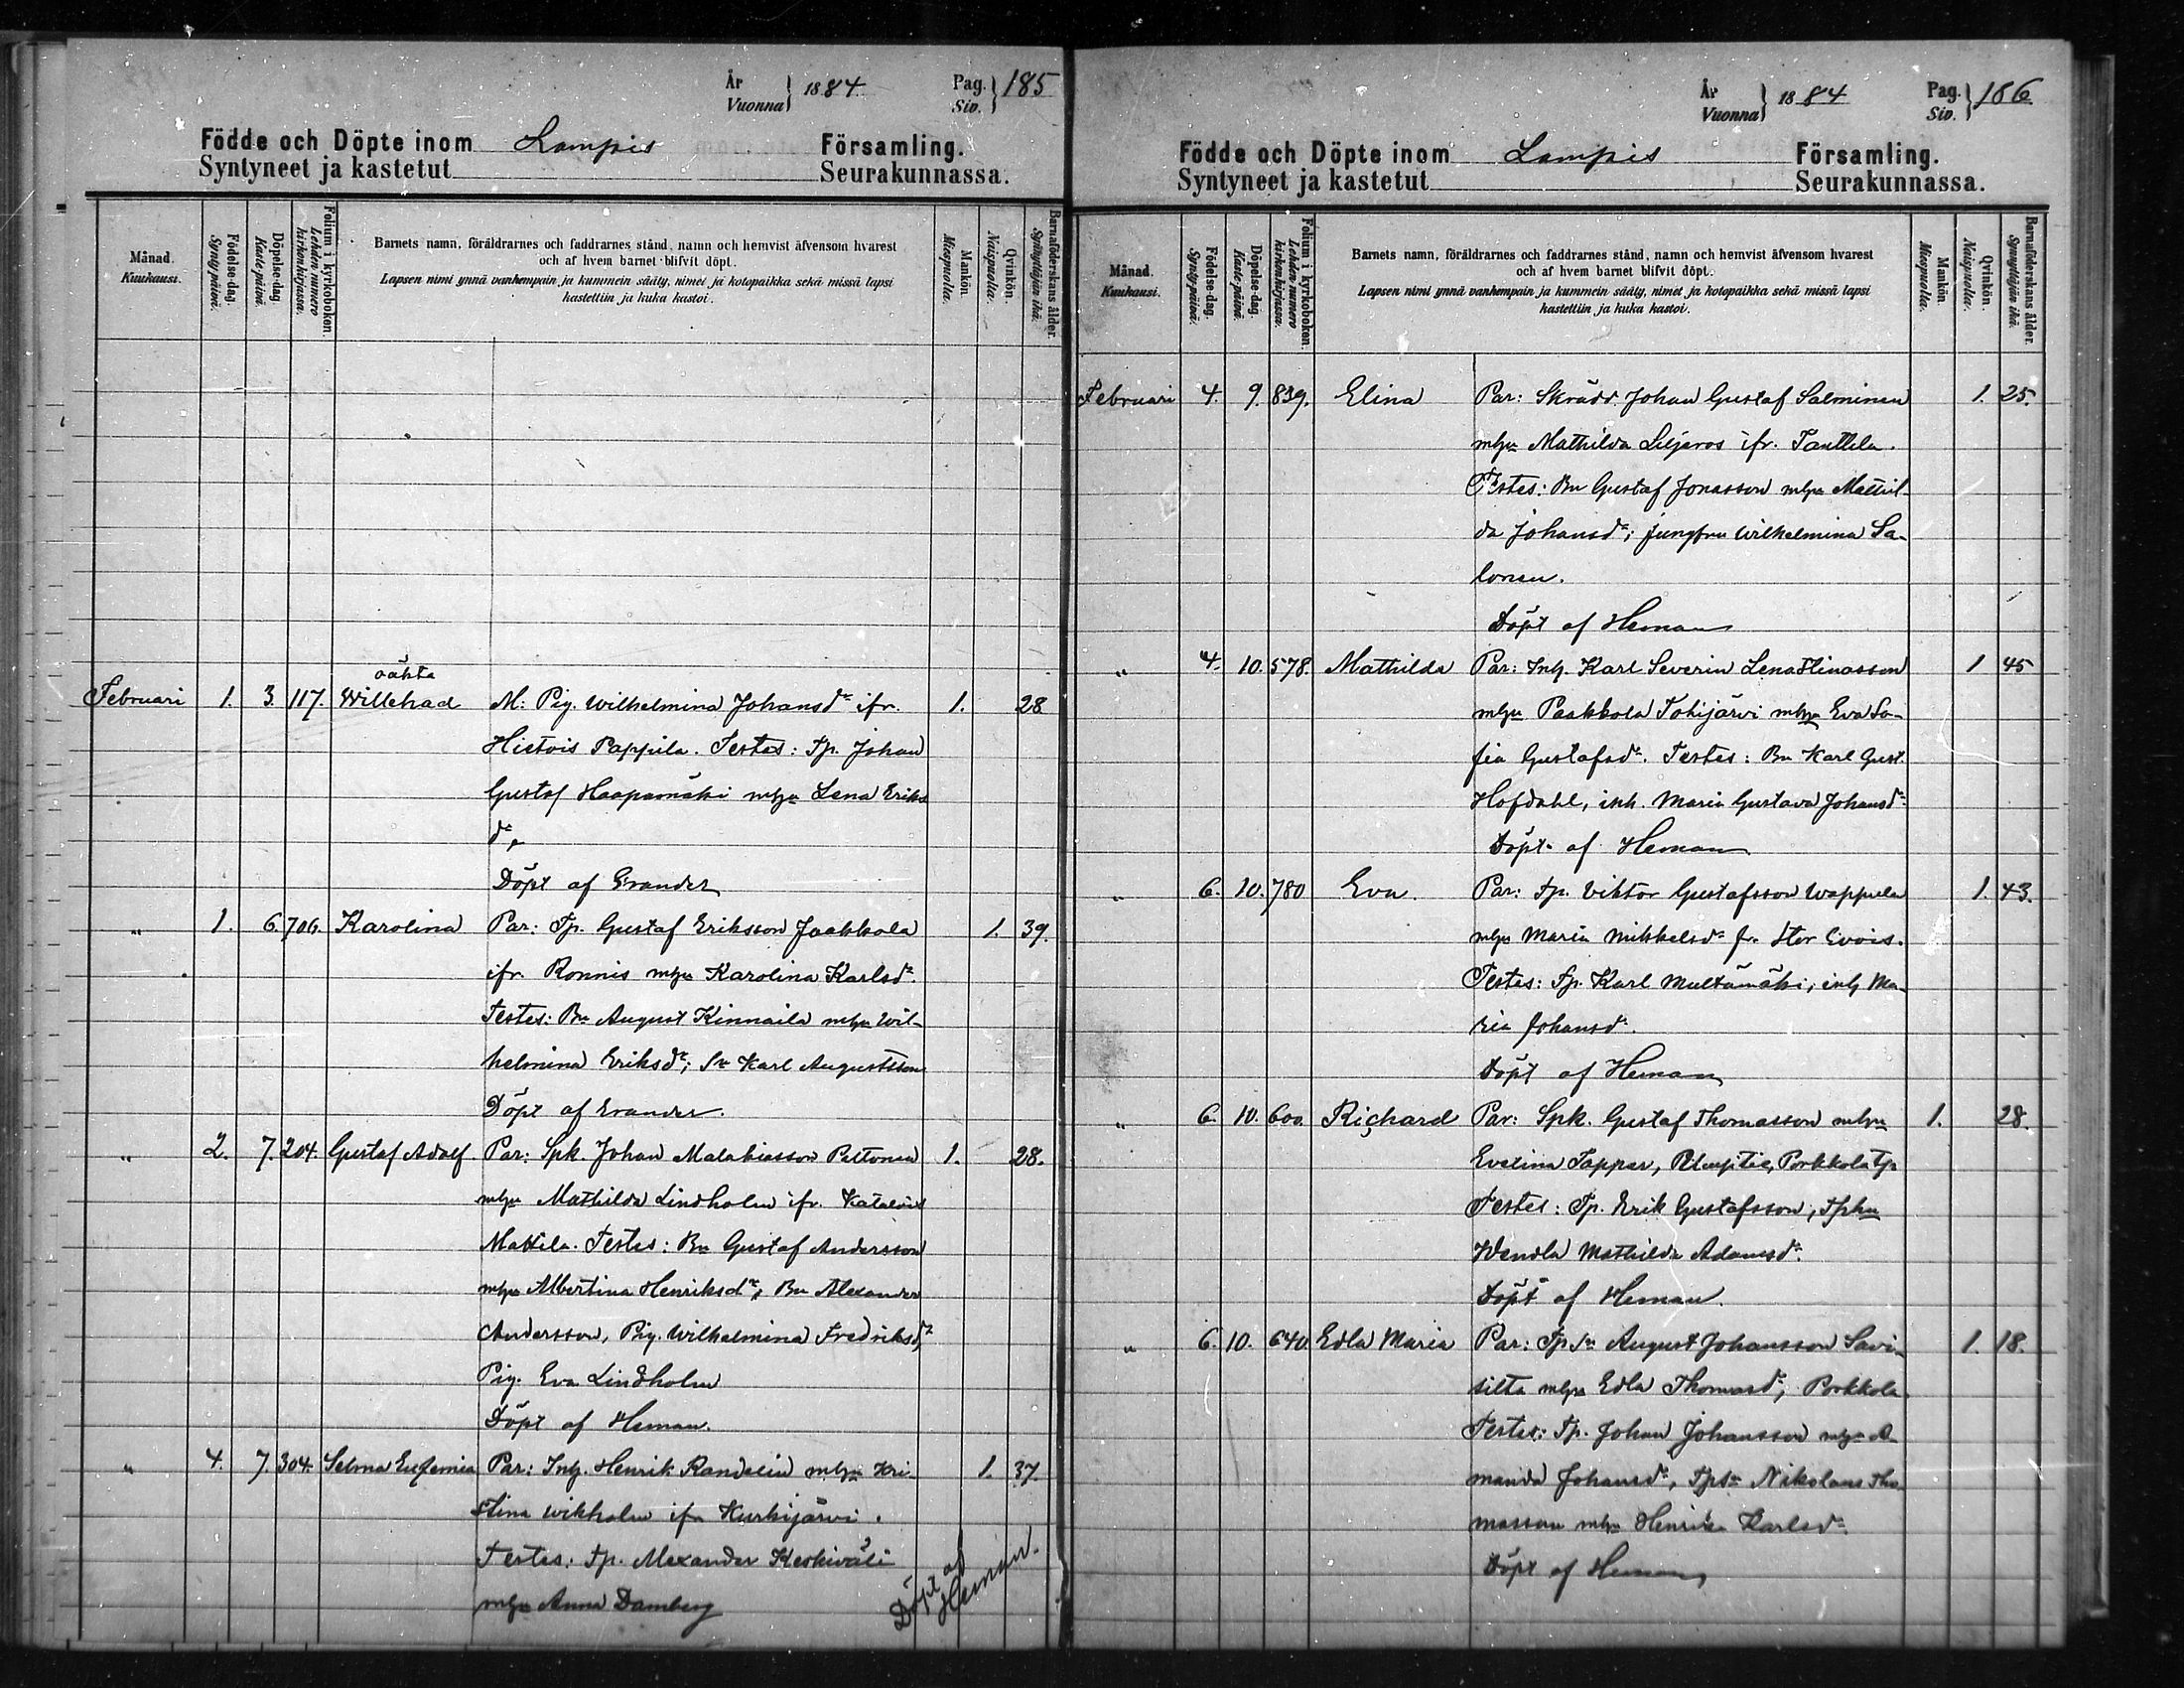 År
Vuonna } 1884 Pag.
Siv. } 185
Födde och Döpte inom Lampis Församling.
Syntyneet ja kastetut Seurakunnassa.
Månad.
Kuukausi.
Födelse-dag.
Synty-päivä.
Döpelse-dag.
Kaste-päivä.
Folium i kyrkoboken.
Lehden numero
kirkonkirjassa.
Barnets namn, föräldrarnes och faddrarnes stånd, namn och hemvist äfvensom hvarest
och af hvem barnet blifvit döpt.
Lapsen nimi ynnä vanhempain ja kummein sääty, nimet ja kotopaikka sekä missä lapsi
kastettiin ja kuka kastoi.
Mankön.
Miespuolia.
Qvinkön.
Naispuolia.
Barnaföderskans ålder.
Synnyttäjän ikä.
oäkta
Februari 1. 3. 117. Willehad M: Pig. Wilhelmina Johansdr ifr. 1. 28
Hietois Pappila. Testes: Tp. Johan
Gustaf Haapamäki mhu Lena Eriks
dr
Döpt af Evander
" 1. 6. 706. Karolina Par: Tp. Gustaf Eriksson Jaakkola 1. 39.
ifr. Ronnis mhu Karolina Karlsdr.
Testes: Bn August Kinnaila mhu Wil-
helmina Eriksdr; Sn Karl Augustsson
Döpt af Evander.
" 2. 7. 204. Gustaf Adolf. Par: Spk. Johan Malakiasson Peltonen 1. 28.
mhu Mathilda Lindholm ifr. Kataloist
Mattila. Testes: Bn Gustaf Andersson
mhu Albertina Henriksdr, Bn Alexander
Andersson, Pig. Wilhelmina Fredriksdr,
Pig. Eva Lindholm
Döpt af Heman.
" 4. 7. 304. Selma Eufemia Par: Inh. Henrik Randelin mhu Kri- 1. 37.
stina Wikholm ifr Kurkijärvi.
Testes: Tp. Alexander Keskiväli
mhu Anna Damberg
Döpt af
Heman.
År
Vuonna } 1884 Pag.
Siv. } 186
Födde och Döpte inom Lampis Församling.
Syntyneet ja kastetut Seurakunnassa.
Månad.
Kuukausi.
Födelse-dag.
Synty-päivä.
Döpelse-dag.
Kaste-päivä.
Folium i kyrkoboken.
Lehden numero
kirkonkirjassa.
Barnets namn, föräldrarnes och faddrarnes stånd, namn och hemvist äfvensom hvarest
och af hvem barnet blifvit döpt.
Lapsen nimi ynnä vanhempain ja kummein sääty, nimet ja kotopaikka sekä missä lapsi
kastettiin ja kuka kastoi.
Mankön.
Miespuolia.
Qvinkön.
Naispuolia.
Barnaföderskans ålder.
Synnyttäjän ikä.
Februari 4. 9. 839. Elina Par: Skrädd. Johan Gustaf Salminen 1. 25.
mhu Mathilda Liljeros ifr. Tanttila.
Testes: Bn Gustaf Jonasson mhu Mathil-
da Johansdr; jungfru Wilhelmina Sa-
lonen.
Döpt af Heman
" 4. 10. 578. Mathilda Par: Inh. Karl Severin Lenastinasson 1 45
mhu Paakkola Tohijärvi mhu Eva So-
fia Gustafsdr. Testes: Bn Karl Gust.
Hofdahl, inh. Maria Gustava Johansdr
Döpt af Heman
" 6. 10. 780 Eva. Par: Tp. Viktor Gustafsson Wappula 1. 43.
mhu Maria Mikkelsdr fr. Stor Evois.
Testes: Tp. Karl Multamäki, inh Ma-
ria Johansdr.
Döpt af Heman
" 6. 10. 600. Richard Par: Spk. Gustaf Thomasson mhu 1. 28.
Evelina Tapper, Porkkola
Testes: Tp. Erik Gustafsson, Tphu
Wendla Mathilda Adamsdr.
Döpt af Heman.
" 6. 10. 640 Edla Maria Par: Tpsn August Johansson Savi- 1. 18.
silta mhu Edla Thomasdr, Porkkola
Testes: Tp. Johan Johansson mhu A-
manda Johansdr, Tpsn Nikolaus Tho-
masson mhu Henrika Karlsdr.
Döpt af Heman